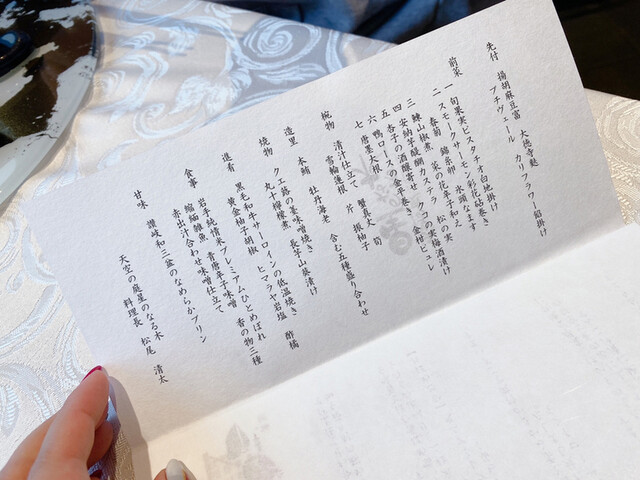 先付 揚胡麻豆富 大徳寺麩
プチヴェール カリフラワー餡掛け
前菜 一 旬果実ピスタチオ白地掛け
二 スモークサーモン彩花砧巻き
春菊 錦糸卵 氷頭なます
三 鰊山椒煮 菜の花辛子和え 松の実
四 安納芋醍醐カステラ クコの実梅酒漬け
五 杏子の酒醸寄せ
六 鴨ロースの金箔巻き 金柑ピュレ
七 唐墨大根
椀物 清汁仕立て 蟹真丈 筍
雪輪蓮根 芹 振柚子
造里 本鮪 牡丹海老 含む五種盛り合わせ
焼物 クエ蕗の薹味噌焼き
丸十檸檬煮 長芋山葵漬け
進肴 黒毛和牛サーロインの低温焼き 酢橘
黄金柚子胡椒 ヒマラヤ岩塩
食事 岩手純情米プレミアムひとめぼれ
縮緬雑魚 青唐辛子味噌 香の物三種
赤出汁合わせ味噌仕立て
甘味 讃岐和三盆のなめらかプリン
天空の庭星のなる木
料理長 松尾 清太